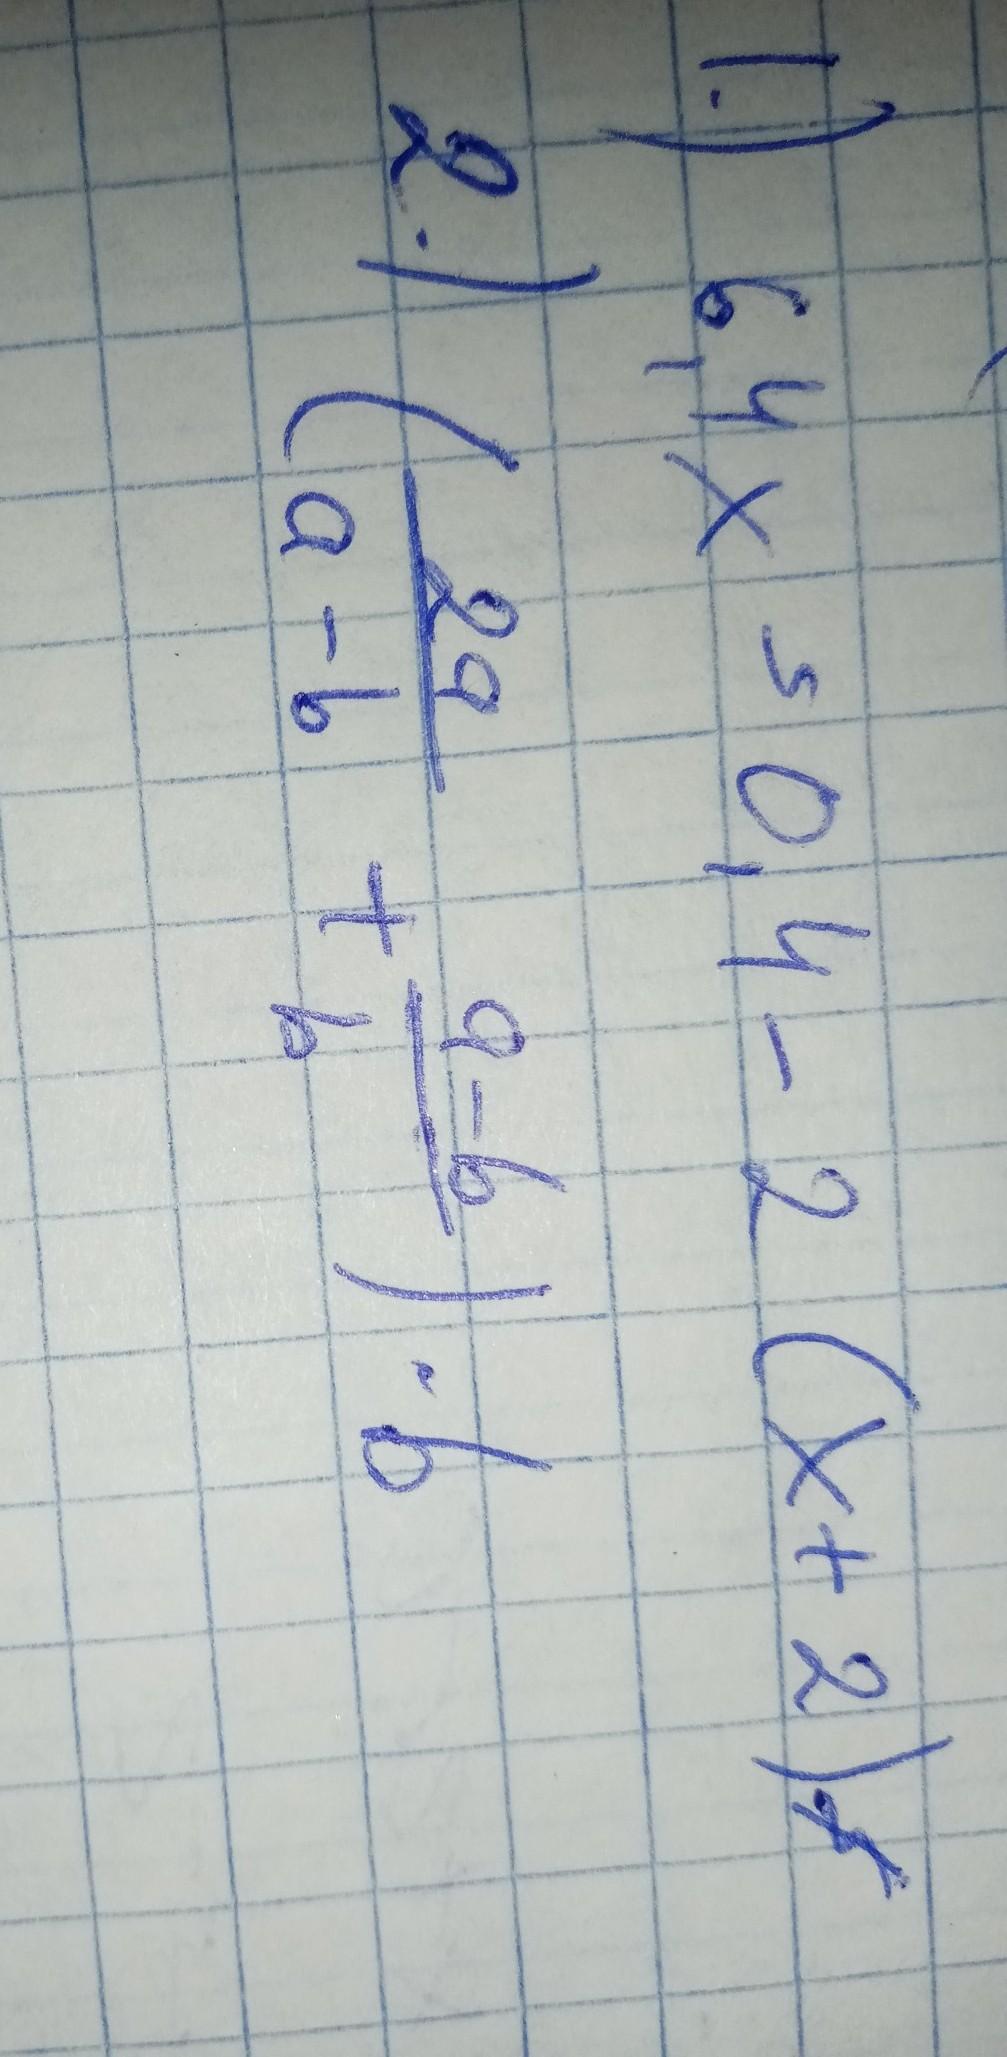 1.) 6,4x = 0,4 - 2 (x + 2)
2.) ( 2a/a - b + a - b/b ) · b